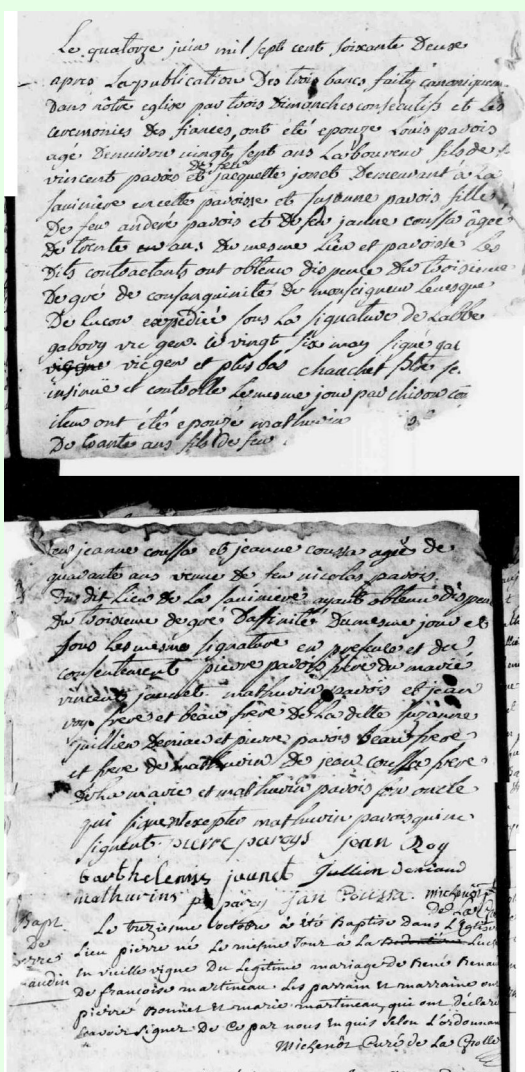 Le quatorze juin mil sept cent soixante Deuxe
apres La publication Des trois bancs faites canoniquem
Dans nôtre eglise par trois Dimanches consecutifs et Les
ceremonies des fiances, ont eté epouze Louis pavois
agé Denviron vingty sept ans Laboureur fils de
vincent pavois et De feu jacquette jonet Demeurant a La
saviniere en cette paroisse et susanne pavois fille
De feu anderé pavois et De feu janne coussa âgee
De trente ans, Du mesme Lieu et paroisse Les
Dits contractants ont obtenu dispence Du troisieme
Degré de consanguinité De monseigneur Levesque
De Lucon expédiée sous La signature de Labbe
gaboury vic gen le vingt six may signe gab
vic gen et plus bas chauchet ptre se
insinué et controlle Le mesme jour par chison con
item ont étés epouzé mathurin
De trante ans fils de feu
feu jeanne coussa et jeanne coussa agée de
quarante ans veuve De feu nicolas pavois,
Du dit Lieu De La saviniere ayant obtenu Dispen
Du troisieme Degré Daffinité Du mesme jour et
sous Les mesme signature en presence et du
consentement pierre pavois frere du marié
vincent jaunet mathurin pavois et jean
roy frere et beau frère De La ditte suzanne
jullien Deriau et pierre pavois beau frere
et frere De mathurin De jean coussa frere
De La mariee et mathurin pavois son oncle
qui signent excepte mathurin pavois qui ne
signent. pierre paroys jean Roy
barthelemy jaunet Jullien deriaud
mathurins parois jan Coussa. michenôt
De La
Bapt Le trezieme octobre a été Baptisé Dans L'Eglise
De Lieu pierre né Le mesme Jour a La
En vieille vigne Du Legitime mariage De René Renau
De francoise martineau. Les parrain et marraine on
pierre Bonnet et marie martineau, qui ont Déclaré
scavoir signer De Ce par nous Enquis Selon L'ordonnan
Michenôt Curé de La Grolle